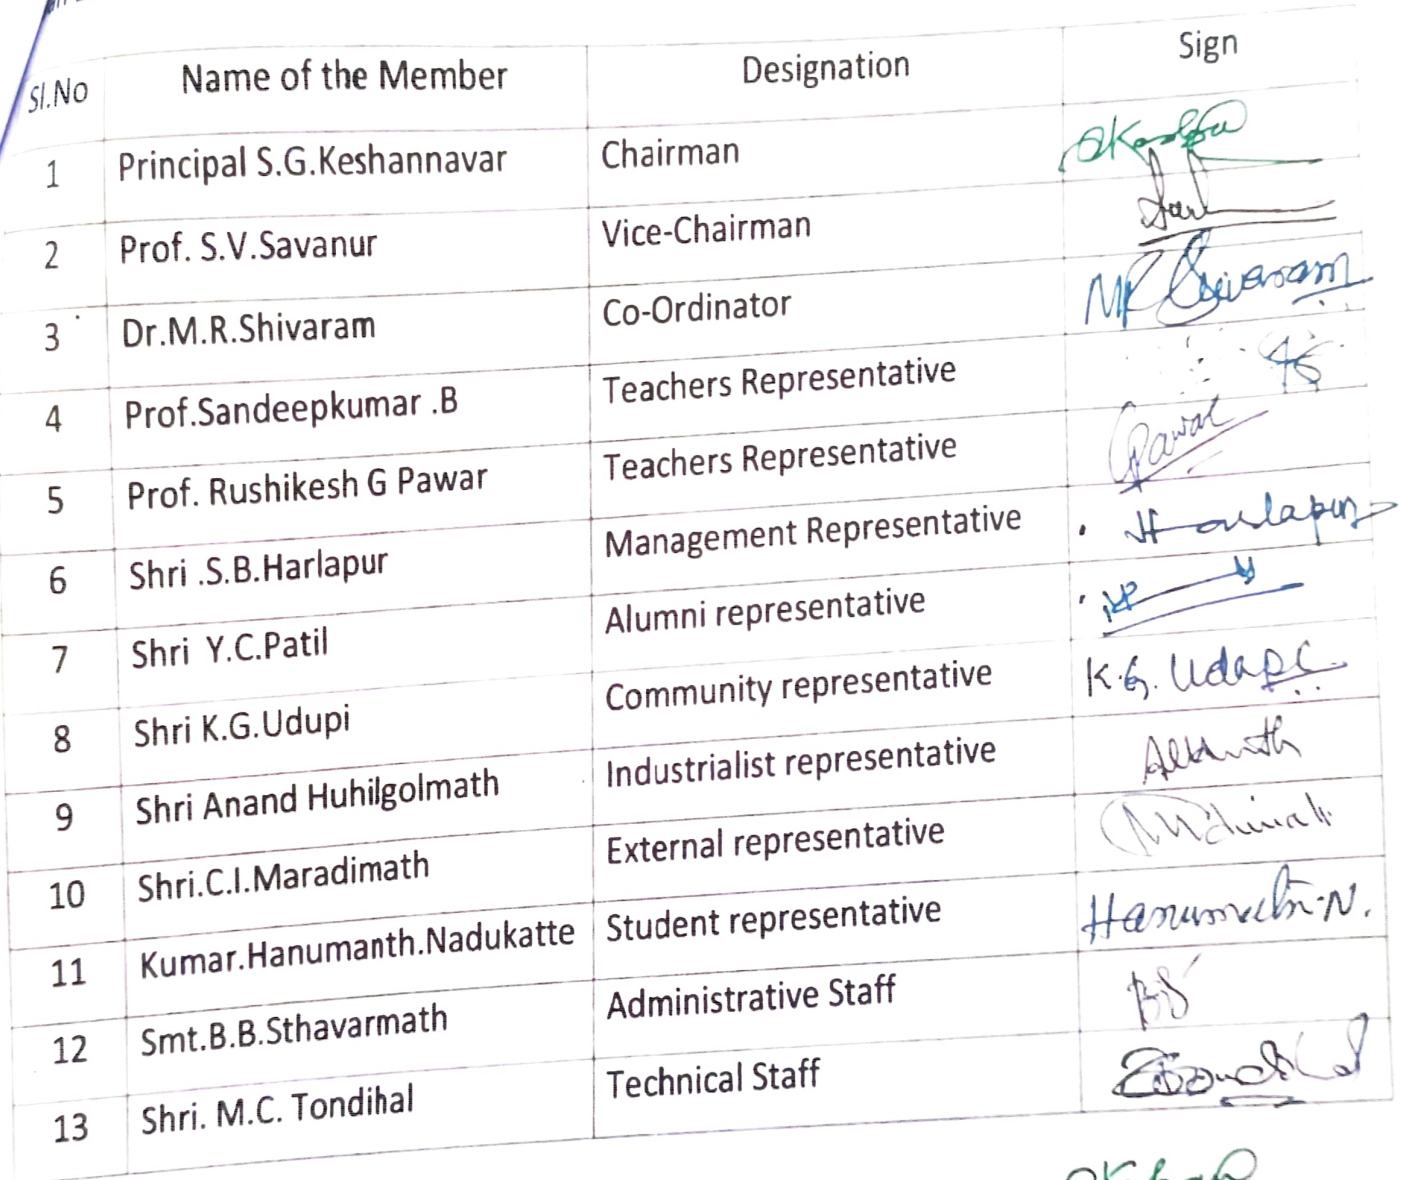 Sl.No Name of the Member Designation Sign
1 Principal S.G.Keshannavar Chairman
2 Prof. S.V.Savanur Vice-Chairman
3 Dr.M.R.Shivaram Co-Ordinator MR Shivaram
4 Prof.Sandeepkumar .B Teachers Representative
5 Prof. Rushikesh G Pawar Teachers Representative Pawar
6 Shri .S.B.Harlapur Management Representative
7 Shri Y.C.Patil Alumni representative
8 Shri K.G.Udupi Community representative K.G. Udupi
9 Shri Anand Huhilgolmath Industrialist representative
10 Shri.C.I.Maradimath External representative
11 Kumar.Hanumanth.Nadukatte Student representative Hanumanth.N.
12 Smt.B.B.Sthavarmath Administrative Staff
13 Shri. M.C. Tondihal Technical Staff